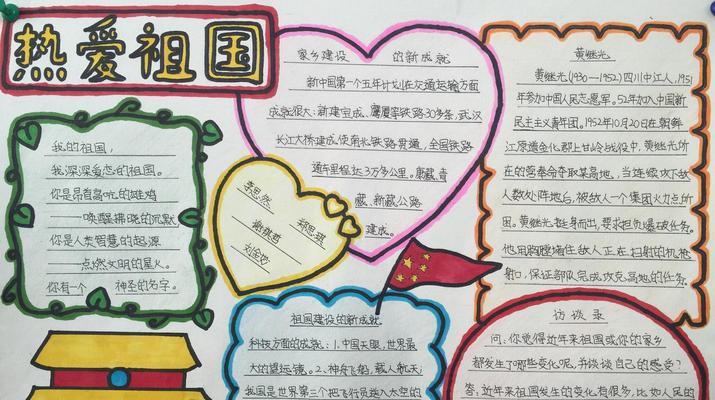 热爱祖国
我的祖国，
我深深爱恋的祖国。
你是昂首高吭的雄鸡
——唤醒拂晓的沉默
你是人类智慧的起源
——点燃文明的星火。
你有一个 神圣的名字。
家乡建设 的新成就
新中国第一个五年计划在交通运输方面
成就很大：新建宝成、鹰厦等铁路30多条，武汉
长江大桥建成使南北铁路贯通，全国铁路
通车里程达3万多公里。康藏、青
藏、新藏公路
建成。
李思然
郑思琪
祖国建设的新成就。
科技方面的成就：1.中国天眼，世界最
大的望远镜。2、神舟飞船，载人航天；
我国是世界第三个把飞行员送入太空的
黄继光
黄继光(1930—1952)四川中江人，1951
年参加中国人民志愿军。52年加入中国新
民主主义青年团。1952年10月20日在朝鲜
江原道金化郡上甘岭战役中，黄继光所
在的营奉命夺取某高地，当连续攻下敌
人数处阵地后，被敌人一个集团火力点所
困。黄继光挺身而出，要求担负爆破任务。
他用胸膛堵住敌人正在扫射的机枪
射口，保证部队完成攻克高地的任务。
访谈录
问：你觉得近年来祖国或你的家乡
都发生了哪些变化呢，并谈谈自己的感受？
答：近年来祖国发生的变化有很多，比如人民的